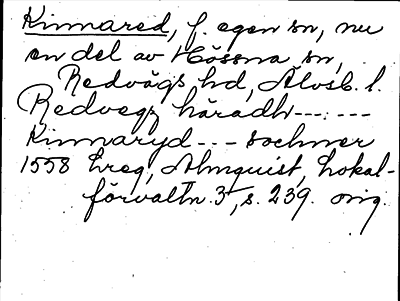 Kinnared, f. egen sn, nu
en del av Hössna sn,
Redvägs hd, Älvsb. l.
Redvegz häradh------
Kinnaryd --- sochner
1558 Lreg, Almquist, Lokal-
förvaltn. 3, s. 239. orig.